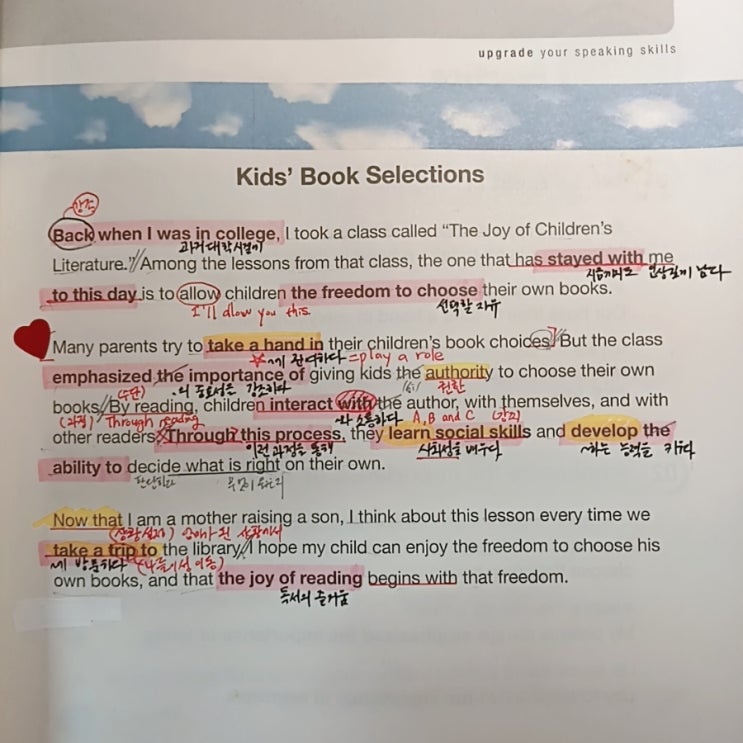 upgrade your speaking skills
Kids' Book Selections
강조
Back when I was in college, I took a class called "The Joy of Children's
과거 대학시절에
Literature." Among the lessons from that class, the one that has stayed with me
지금까지도 인상깊게 남다
to this day is to allow children the freedom to choose their own books.
I'll allow you this 선택할 자유
Many parents try to take a hand in their children's book choices. But the class
~에 관여하다 = play a role
emphasized the importance of giving kids the authority to choose their own
(수단) ~의 중요성을 강조하다 권한
books. By reading, children interact with the author, with themselves, and with
(과정) Through reading ~와 소통하다 A, B and C
other readers. Through this process, they learn social skills and develop the
이런 과정을 통해 사회성을 배우다 ~하는 능력을 키우다
ability to decide what is right on their own.
판단하다
Now that I am a mother raising a son, I think about this lesson every time we
엄마가 된 상황에서
take a trip to the library. I hope my child can enjoy the freedom to choose his
~에 방문하다
own books, and that the joy of reading begins with that freedom.
독서의 즐거움